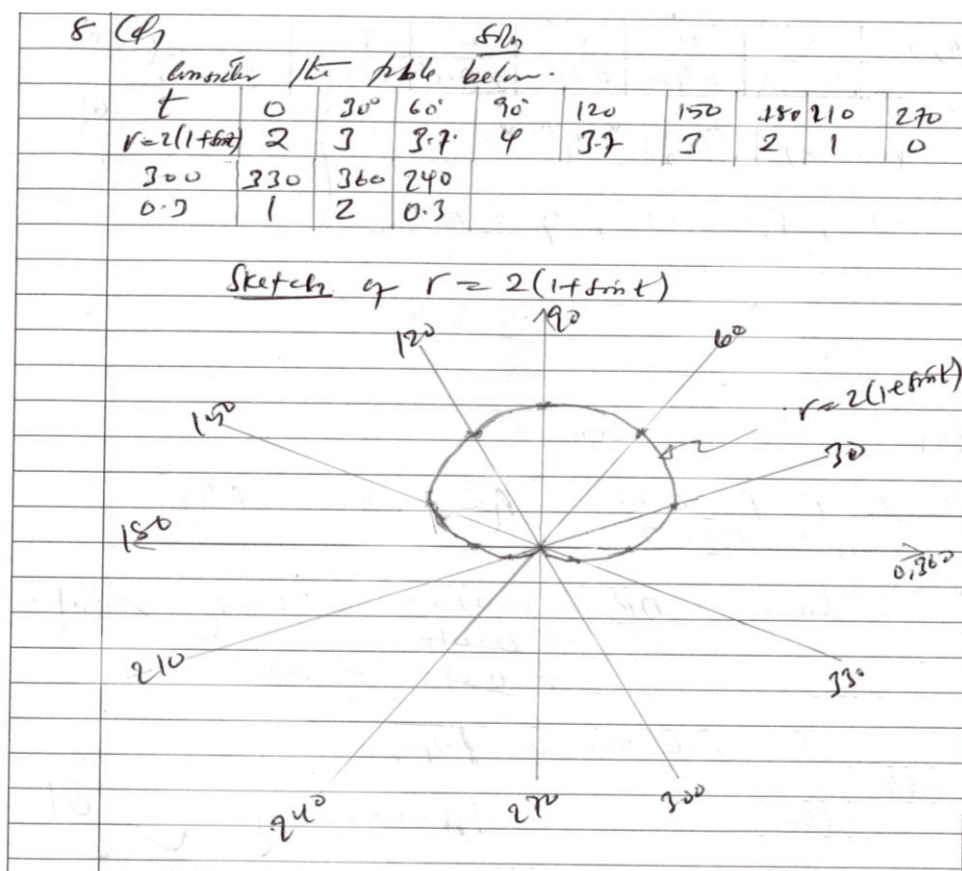 8 (d) Soln
Consider the table below.
t 0 30° 60° 90° 120 150 180 210 270
r=2(1+sint) 2 3 3.7 4 3.7 3 2 1 0
300 330 360 240
0.3 1 2 0.3
Sketch of r = 2(1+sint)
90
120 60
r=2(1+sint)
150
30
180
0,360
210
330
240 270 300